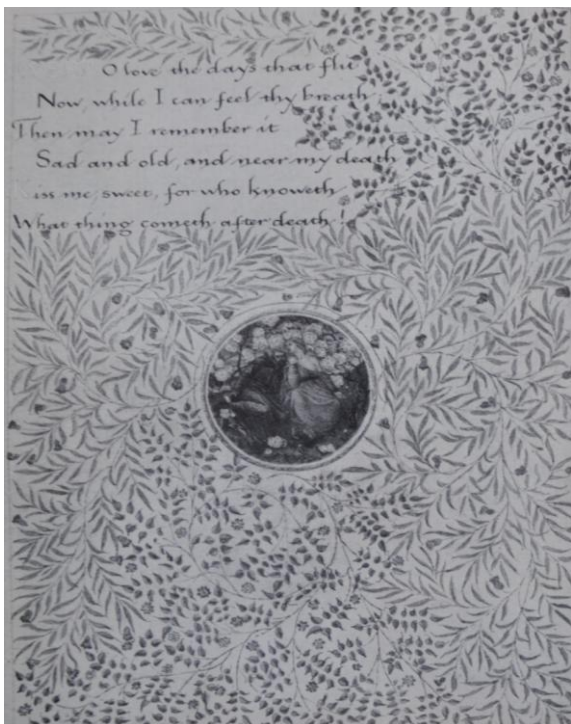 O love the days that flit
Now, while I can feel thy breath
Then may I remember it
Sad and old, and near my death
iss me, sweet, for who knoweth
What thing cometh after death!